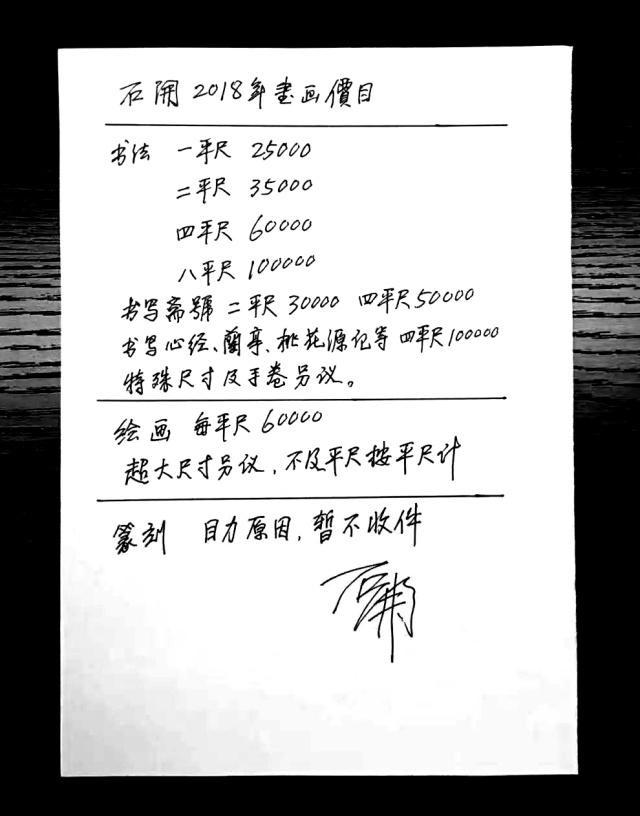 石開 2018年書画價目
书法 一平尺 25000
二平尺 35000
四平尺 60000
八平尺 100000
书写斋號 二平尺 30000 四平尺 50000
书写心经、蘭亭、桃花源记等 四平尺 100000
特殊尺寸及手卷另议。
绘画 每平尺 60000
超大尺寸另议，不及平尺按平尺计
篆刻 目力原因，暂不收件
石開